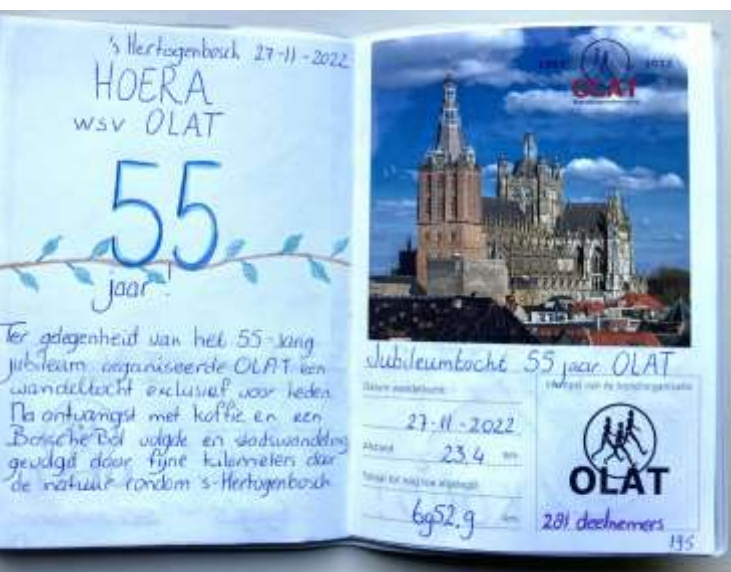 's Hertogenbosch 27-11-2022
HOERA
wsv OLAT
55
jaar!
Ter gelegenheid van het 55-jarig
jubileum organiseerde OLAT een
wandeltocht exclusief voor leden.
Na ontvangst met koffie en een
Bossche Bol volgde en stadswandeling
gevolgd door fijne kilometers door
de natuur rondom 's-Hertogenbosch
2022
OLAT
Jubileumtocht 55 jaar OLAT
Datum wandeltocht
27-11-2022
Afstand 23,4 km
Totaal tot nog toe afgelegd
6952,9 km
Stempel van de bondsorganisatie
OLAT
281 deelnemers
195